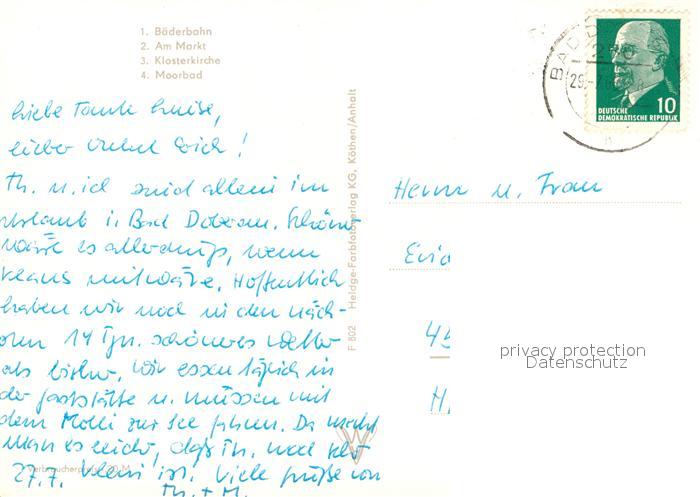 1. Bäderbahn
2. Am Markt
3. Klosterkirche
4. Moorbad
Liebe Tante Luise,
lieber Onkel Erich!
Th. u. ich sind allein im
Urlaub i. Bad Doberan. Schöner
wäre es allerdings, wenn
Klaus mitwäre. Hoffentlich
haben wir noch in den näch-
sten 14 Tgn. schöneres Wetter
als bisher. Wir essen täglich in
der Gaststätte u. müssen mit
dem Molli zur See fahren. Da merkt
man es nicht, daß Th. noch
27.7. klein ist. Viele Grüße von
Th. + M.
Verbraucherpreis
F 802 Heldge-Farbfotoverlag KG, Köthen/Anhalt
BAD D
29.-7.
10
DEUTSCHE
DEMOKRATISCHE REPUBLIK
Herrn u. Frau
45
H
privacy protection
Datenschutz